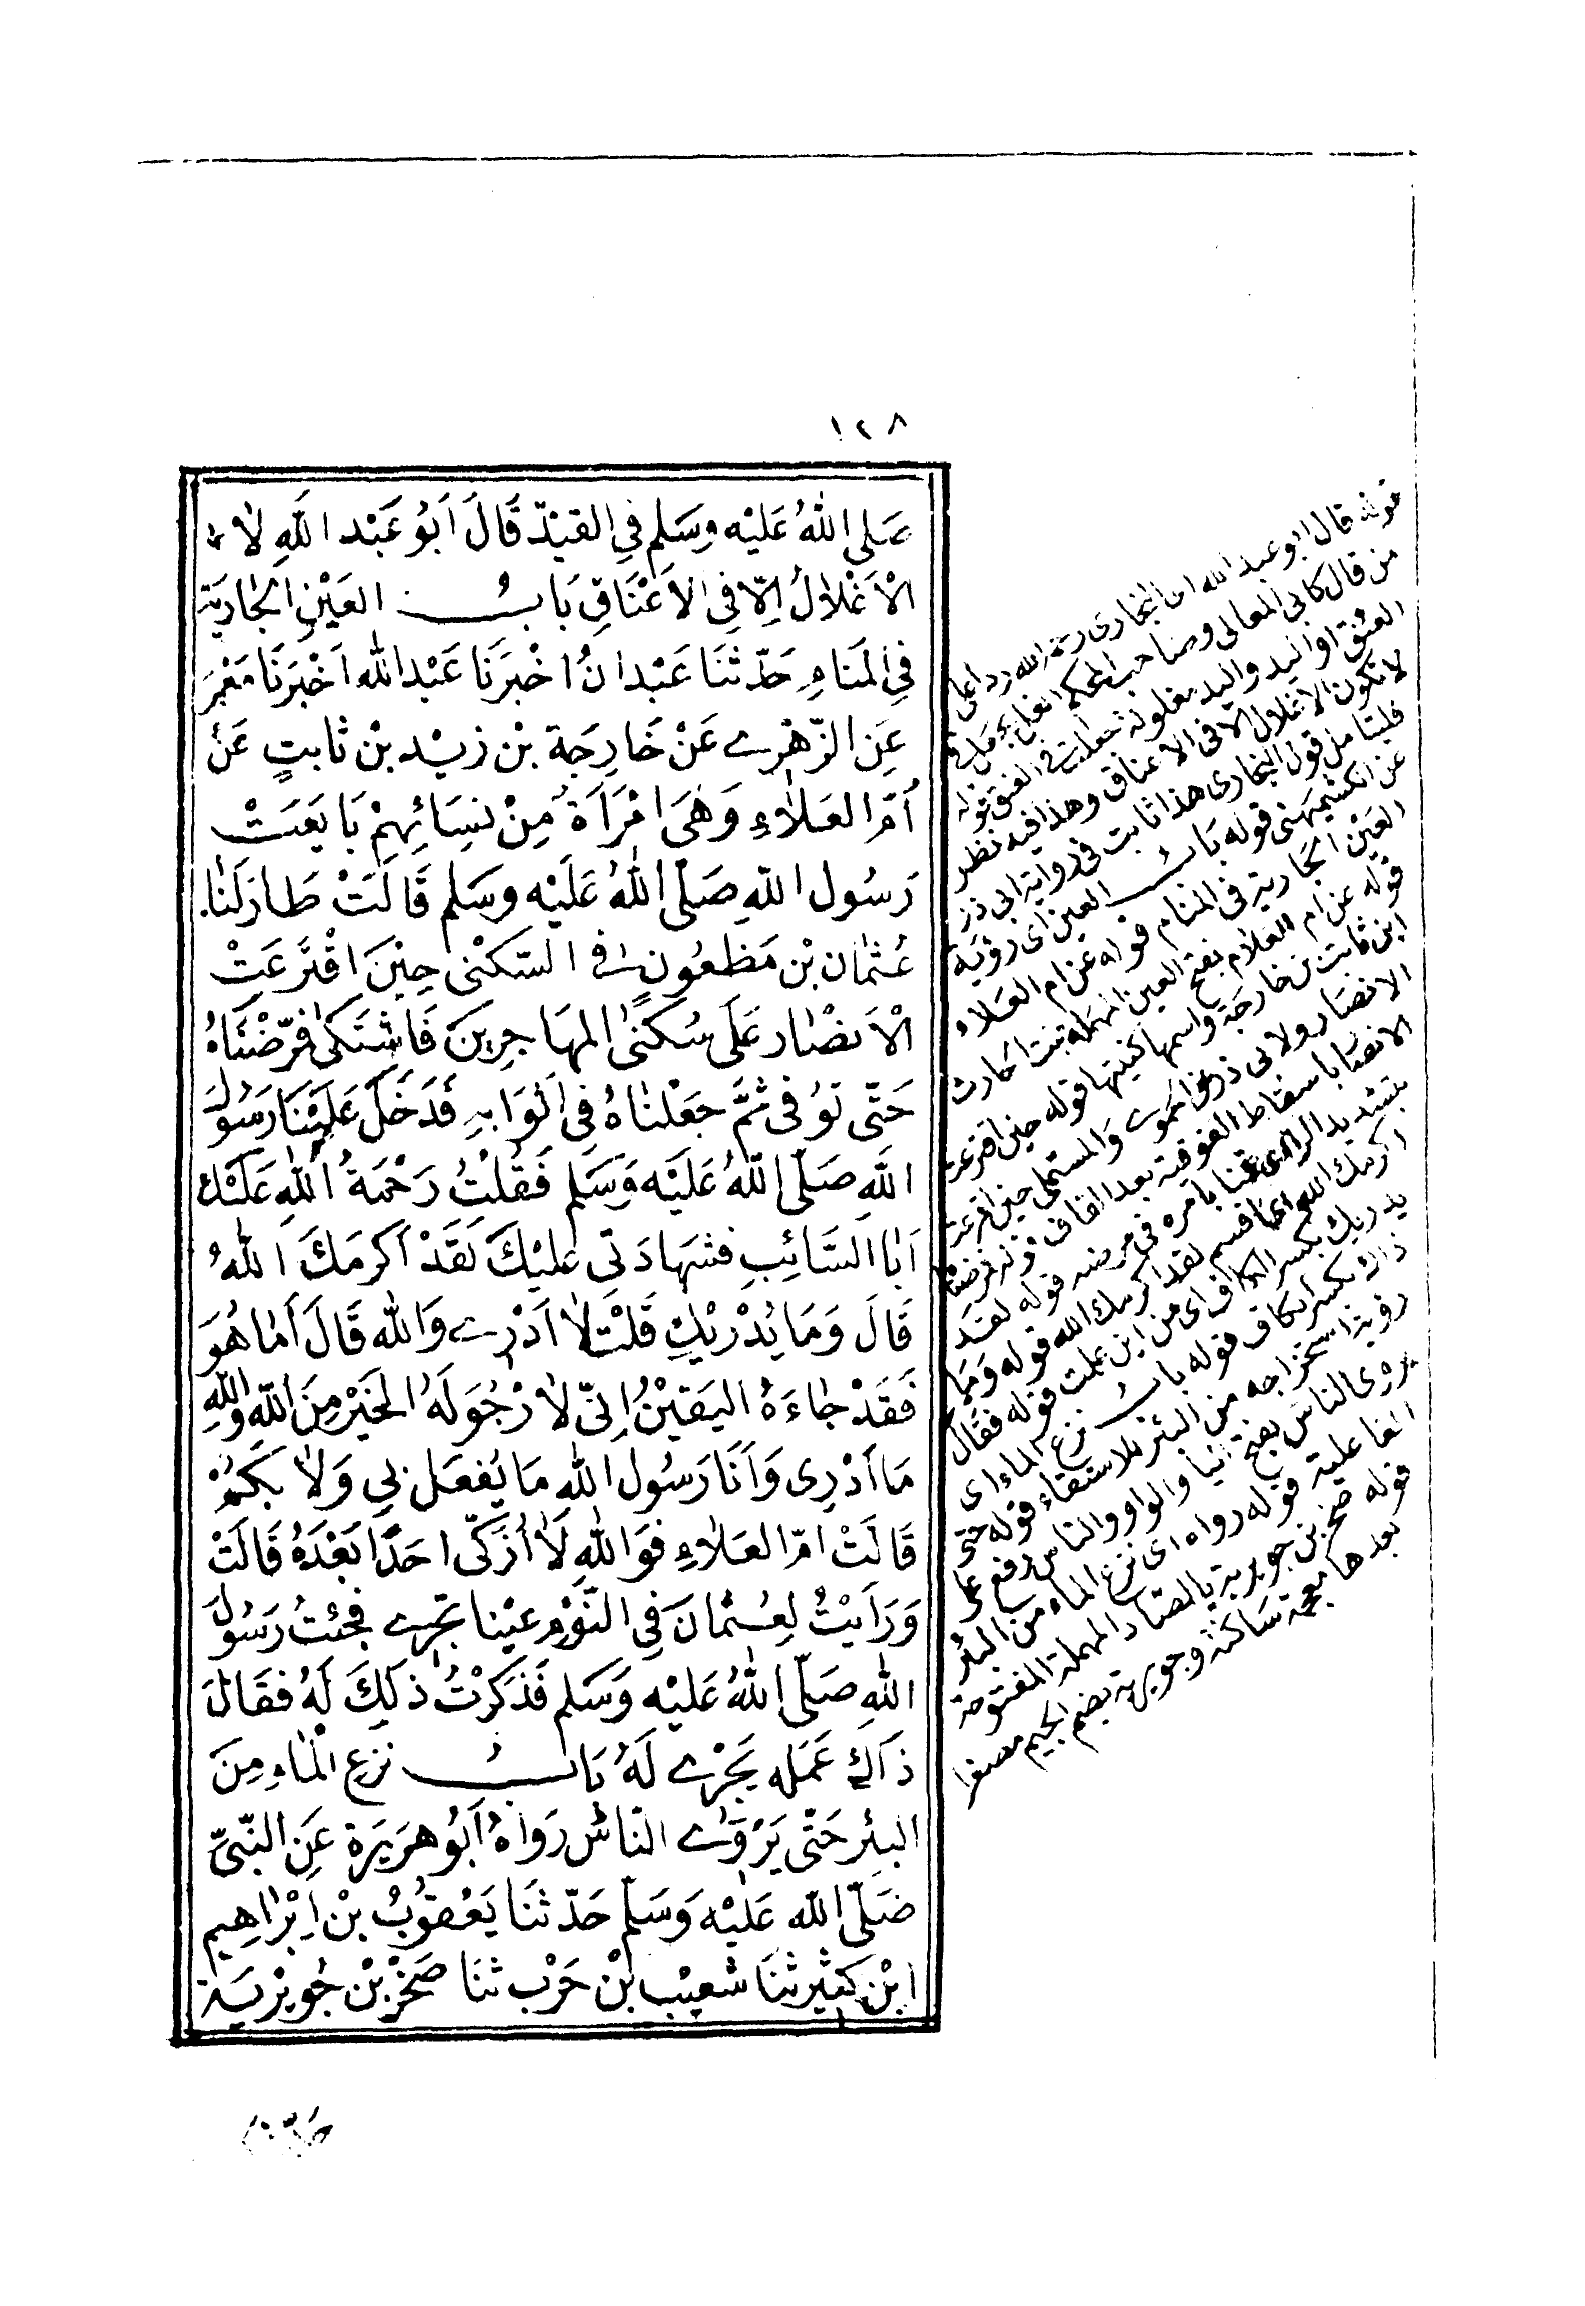 ١٢٨
صَلى اللهُ عَليْه وسَلم فِي القيْدّ قَالَ اَبُو عَبْد اللَّهِ لاٰ
الْاَغْلاٰلُ اِلّا فِى الاَعْنَاقِ بَابُ العَيْنِ الجَارِيَة
فِي المَنامِ حَدّثنَا عَبْدانُ اخْبَرَنَا عَبْدالله اَخْبَرَنَا مَعْمَر
عَنِ الزّهْرِے عَنْ خَارِجَة بْن زيْد بْن ثابتٍ عَنْ
اُمّ العَلاٰءِ وَهْىَ امْرَاَةٌ مِنْ نِسَائِهِمْ بَايَعَتْ
رَسُول اللهِ صَلّى اللهُ عَلَيْه وسَلم قَالَتْ طَارَلَنَا
عُثمٰان بْن مَظعُونٍ فى السّكنْى حِيْنَ اقْتَرَعَتْ
الْاَنصَار عَلَى سُكنَى المهَاجِرِينَ فَاشتَكى فَمَرّضْنَاهُ
حَتّى توُفى ثُمَّ جعَلْنَاهُ فِي اَثوَابِهِ فَدَخَلَ عَليْنَا رَسُولُ
اللَّهِ صَلّى اللهُ عَلَيْه وَسَلم فَقُلْتُ رَحْمَةُ اللهِ عَلَيْكَ
اَبَا السَّائِبِ فشهَادَتِى عَليْكَ لَقَدْ اَكرَمَكَ اللهُ
قَالَ وَمَا يُدْرِيْكِ قَلْتُ لاٰ اَدْرِے وَالله قَالَ اَمّا هُوَ
فَقَدْ جَاءَهُ اليَقيْنُ اِنِّى لاَرْجُو لَهُ الخَيْرَ مِنَ اللهِ وَاللهِ
مَا اَدْرِى وَاَنَا رَسُول اللهِ مَا يُفعَل بِي وَلاٰ بِكُمْ
قَالَتْ امّ العَلاٰءِ فوَاللهِ لاَ اُزَكّى احَدًا بَعْدَهُ قَالَتْ
وَرَاَيْتُ لِعُثمٰانَ فِي النَّوْمِ عيْنا تجْرِے فَجئتُ رَسُولَ
اللهِ صَلّى اللهُ عَليْه وَسَلم فَذكَرْتُ ذلِكَ لَهُ فقَالَ
ذَاكِ عَمَله يَجْرِے لَهُ بَابُ نزع الْمَاءِ مِنَ
البئر حَتّى يَرْوَے النّاسُ رَوَاهُ اَبُو هرَيرَة عَنِ النّبىّ
صَلّى الله عَليْه وَسَلّم حَدّثنَا يَعْقوُبُ بْن اِبْرَاهِيم
ابْن كثيْر ثنَا شعَيْب بْن حَرْب ثنَا صَخرْ بْن جُوَيْرِيَة
قوله قال ابو عبد الله اى البخارى رحمه الله ردا على
من قال كابى المعالى وصاحب المحكم الغل يجعل فى
العنق او اليد واليد مغلولة جعلت فى العنق قوله
لا تكون الاغلال الا فى الاعناق وهذا فيه نظر
فليتامل قول البخارى هذا ثابت فى رواية ابى ذر
عن الكشميهنى قوله باب العين اى رؤية
العين الجارية فى المنام قوله عن ام العلاء
قوله عن ام العلاء بفتح العين المهملة بنت الحارث
ابن ثابت بن خارجة واسمها كنيتها قوله حين اقترعت
الانصار ولابى ذر عن الحموى والمستملى حين اقرعت
الانصار باسقاط الفوقية بعد القاف قوله فمرضناه
بتشديد الراء اى قمنا بامره فى مرضه قوله لقد
اكرمك الله اى اقسم لقد اكرمك الله قوله وما
يدريك بكسر الكاف اى من اين علمت قوله فقال
ذاك بكسر الكاف قوله باب نزع الماء اى
رؤية استخراجه من البئر للاستقاء قوله حتى
يروى الناس بفتح اليا والواو والناس رفع على
الفاعلية قوله رواه اى نزع الماء من البئر
قوله صخر بن جويرية بالصاد المهملة المفتوحة
بعدها معجمة ساكنة وجويرية بضم الجيم مصغرا